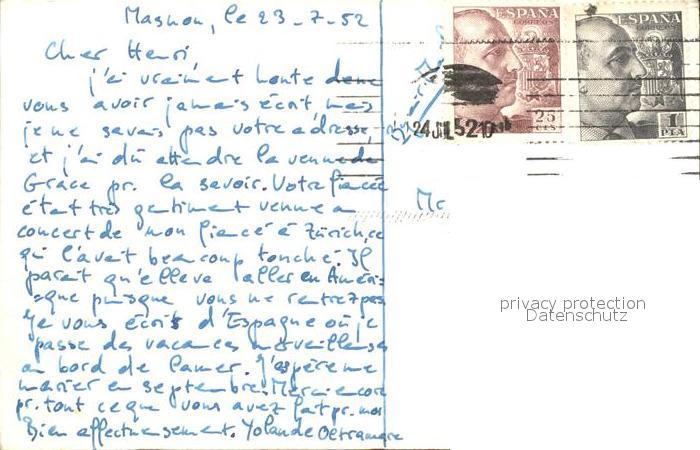 Masnou, le 23-7-52
Cher Henri,
j'ai vraiment honte de ne
vous avoir jamais écrit mais
je ne savais pas votre adresse,
et j'ai dû attendre la venue de
Grace pr. la savoir. Votre fiancée
était très gentiment venue a
concert de mon fiancé à Zürich, ce
qui l'avait beaucoup touché. Il
parait qu'elle va aller en Améri-
-que puisque vous ne rentrez pas
Je vous écris d'Espagne où je
passe des vacances merveilleuses
au bord de la mer. J'espère me
marier en septembre. Merci encore
pr. tout ce que vous avez fait pr. moi
Bien affectueusement. Yolande
ESPAÑA
CORREOS
25
CTS
ESPAÑA
CORREOS
1
PTA
24 JUL 52
Mr
privacy protection
Datenschutz